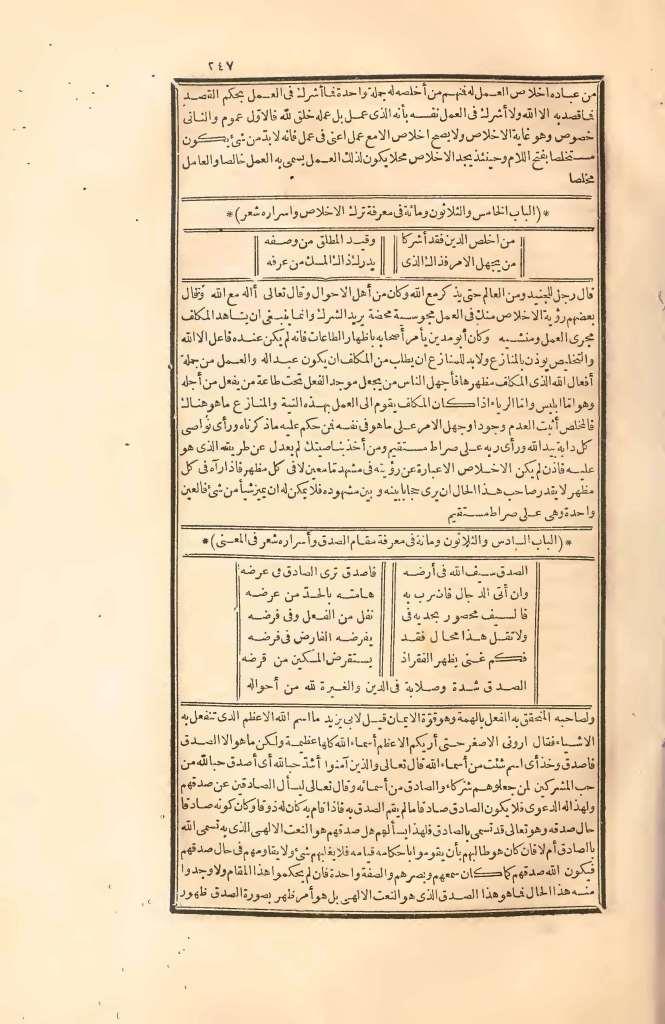 ٢٤٧
من عباده اخلاص العمل له فنهم من أخلصه له جملة واحدة فما أشرك فى العمل بحكم القصد
فما قصد به الا الله ولا أشرك فى العمل نفسه بأنه الذى عمل بل عمله خلق لله فالاول عموم والثانى
خصوص وهو غاية الاخلاص ولا يصح اخلاص الا مع عمل اعنى فى عمل فانه لا بد من شئ يكون
مستخلصا بفتح اللام وحينئذ يجد الاخلاص محلا يكون لذلك العمل يسمى به العمل خالصا والعامل
مخلصا
*(الباب الخامس والثلاثون ومائة فى معرفة ترك الاخلاص واسراره شعر)*
من اخلص الدين فقد أشركا وقيد المطلق من وصفه
من يجهل الامر فذاك الذى يدرك ذاك المسك من عرفه
قال رجل للجنيد ومن العالم حتى يذكر مع الله وكان من أهل الاحوال وقال تعالى أاله مع الله وقال
بعضهم رؤية الاخلاص منك فى العمل مجوسية محضة يريد الشرك وانما ينبغى ان يشاهد المكلف
مجرى العمل ومنشيه وكان أبو مدين يأمر أصحابه باظهار الطاعات فانه لم يكن عنده فاعل الا الله
والتخليص يؤذن بالمنازع ولا بد للمنازع ان يطلب من المكلف ان يكون عبدا له والعمل من جملة
أفعال الله الذى المكلف مظهرها فأجهل الناس من يجعل موجد الفعل تحت طاعة من يفعل من أجله
وهو اما ابليس واما الرياء اذا كان المكلف يقوم الى العمل بهذه النية والمنازع ما هو هناك
فالمخلص أثبت العدم وجودا وجهل الامر على ما هو فى نفسه فمن حكم عليه ما ذكرناه ورأى نواصى
كل دابة بيد الله ورأى ربه على صراط مستقيم ومن أخذ بناصيتك لم يعدل عن طريقه الذى هو
عليه فاذن لم يكن الاخلاص الا عبارة عن رؤيته فى مشهد ما معين لا فى كل مظهر فاذا رآه فى كل
مظهر لا يقدر صاحب هذا الحال ان يرى حجابا بينه وبين مشهوده فلا يمكن له ان يميز شيأ من شئ فالعين
واحدة وهى على صراط مستقيم
*(الباب السادس والثلاثون ومائة فى معرفة مقام الصدق وأسراره شعر فى المعنى)*
الصدق سيف الله فى أرضه فاصدق ترى الصادق فى عرضه
وان أتى الدجال فاضرب به هامته بالحد من عرضه
فالسيف محصور بحديه فى نفل من الفعل وفى فرضه
ولا تقل هذا محال فقد يفرضه الفارض فى فرضه
فكم غنى يظهر الفقر اذ يستقرض المسكين من قرضه
الصدق شدة وصلابة فى الدين والغيرة لله من أحواله
ولصاحبه المتحقق به الفعل بالهمة وهو قوة الايمان قيل لابى يزيد ما اسم الله الاعظم الذى تنفعل به
الاشياء فقال ارونى الاصغر حتى أريكم الاعظم أسماء الله كلها عظيمة ولكن ما هو الا الصدق
فاصدق وخذ أى اسم شئت من أسماء الله قال تعالى والذين آمنوا أشد حبا لله أى أصدق حبا لله من
حب المشركين لمن جعلوهم شركاء والصادق من أسمائه وقال تعالى ليسأل الصادقين عن صدقهم
ولهذا له الدعوى فلا يكون الصادق صادقا ما لم يقم الصدق به فاذا قام به كان له ذوقا وكان كونه صادقا
حال صدقه وهو تعالى قد تسمى بالصادق فلهذا يسألهم هل صدقهم هو النعت الالهى الذى به تسمى الله
بالصادق أم لا فان كان هو طالبهم بأن يقوموا باحكامه قيامه فلا يغلبهم شئ ولا يقاومهم فى حال صدقهم
فيكون الله صدقهم كما كان سمعهم وبصرهم والصفة واحدة فان لم يحكموا هذا المقام ولا وجدوا
منه هذا الحال فما هو هذا الصدق الذى هو النعت الالهى بل هو أمر ظهر بصورة الصدق ظهور